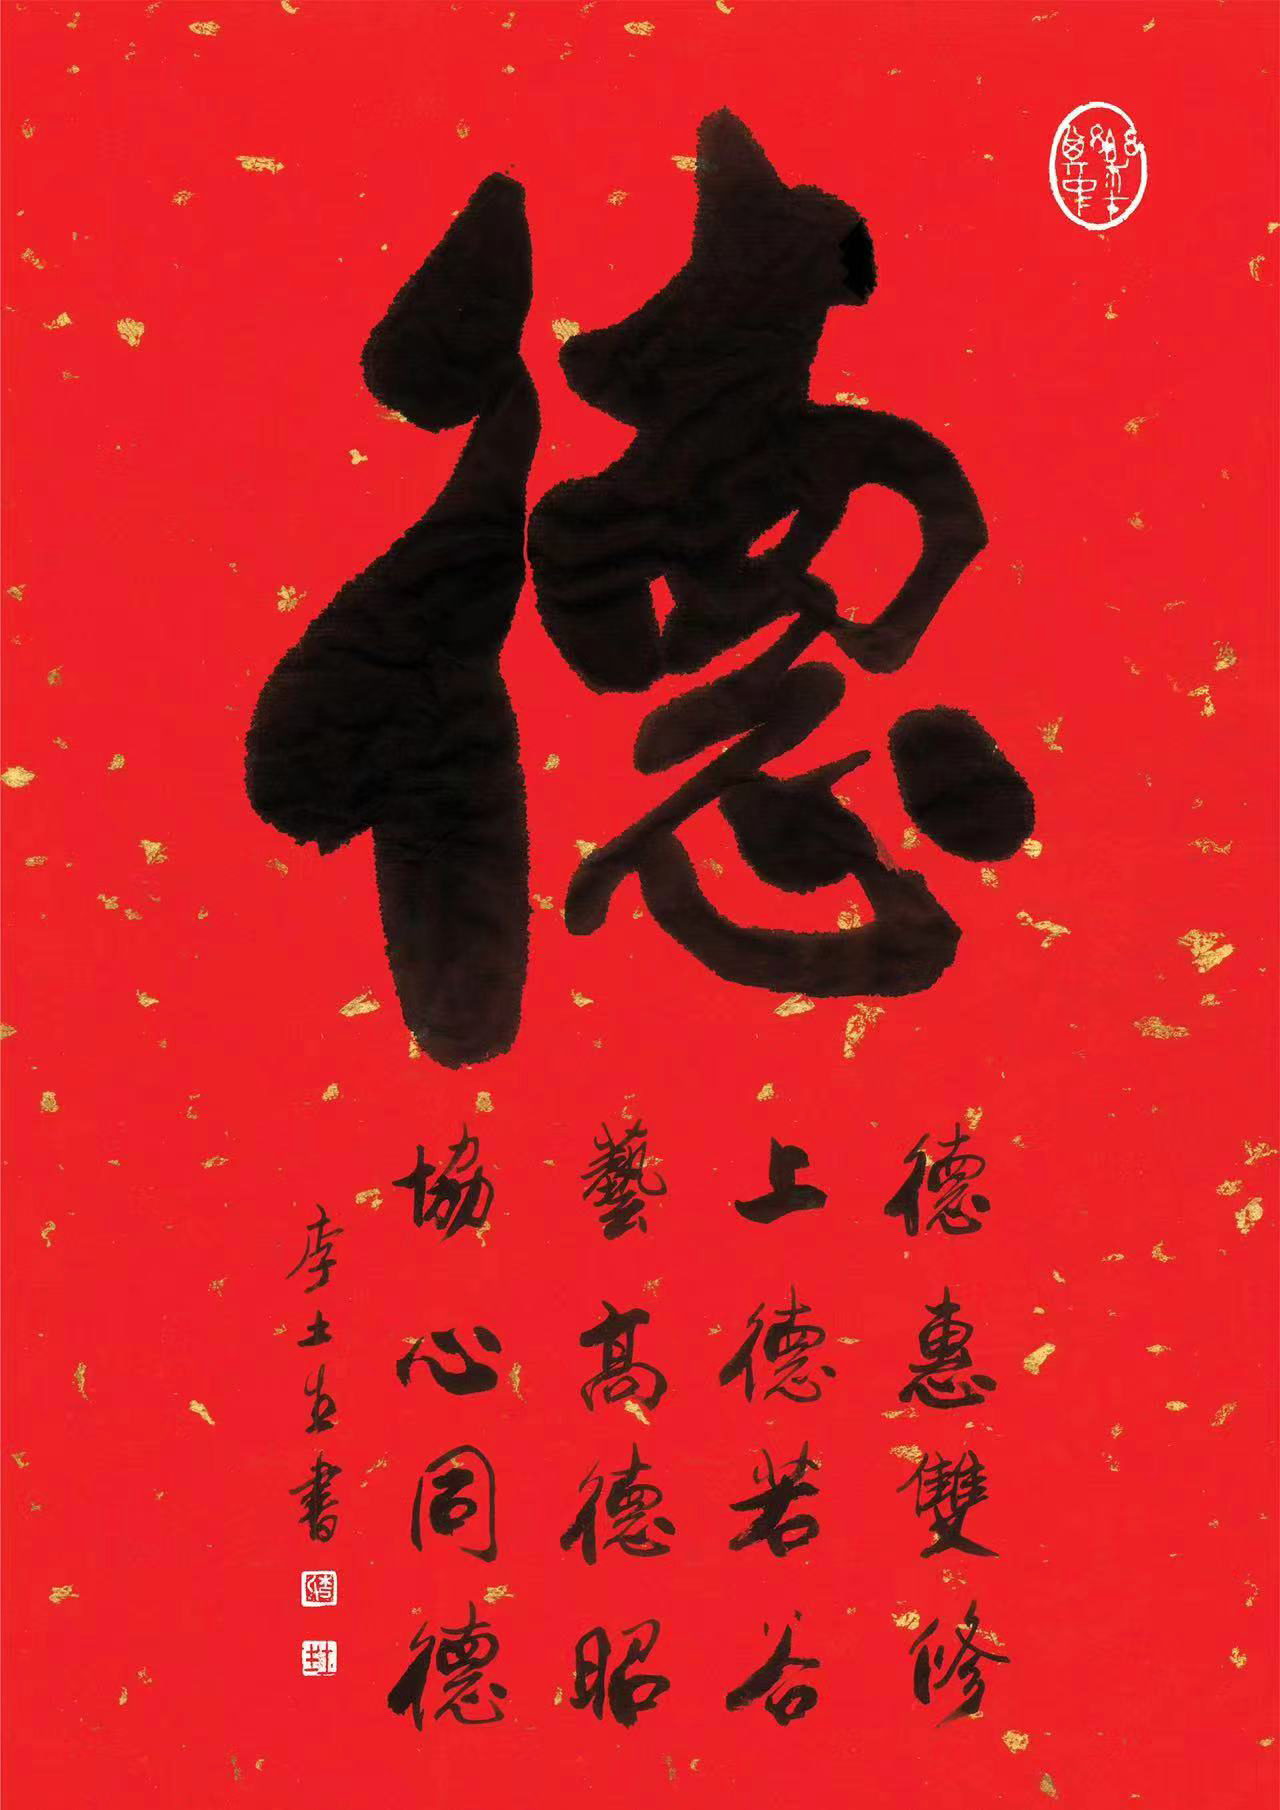 德
德惠雙修
上德若谷
藝高德昭
協心同德
李土生書